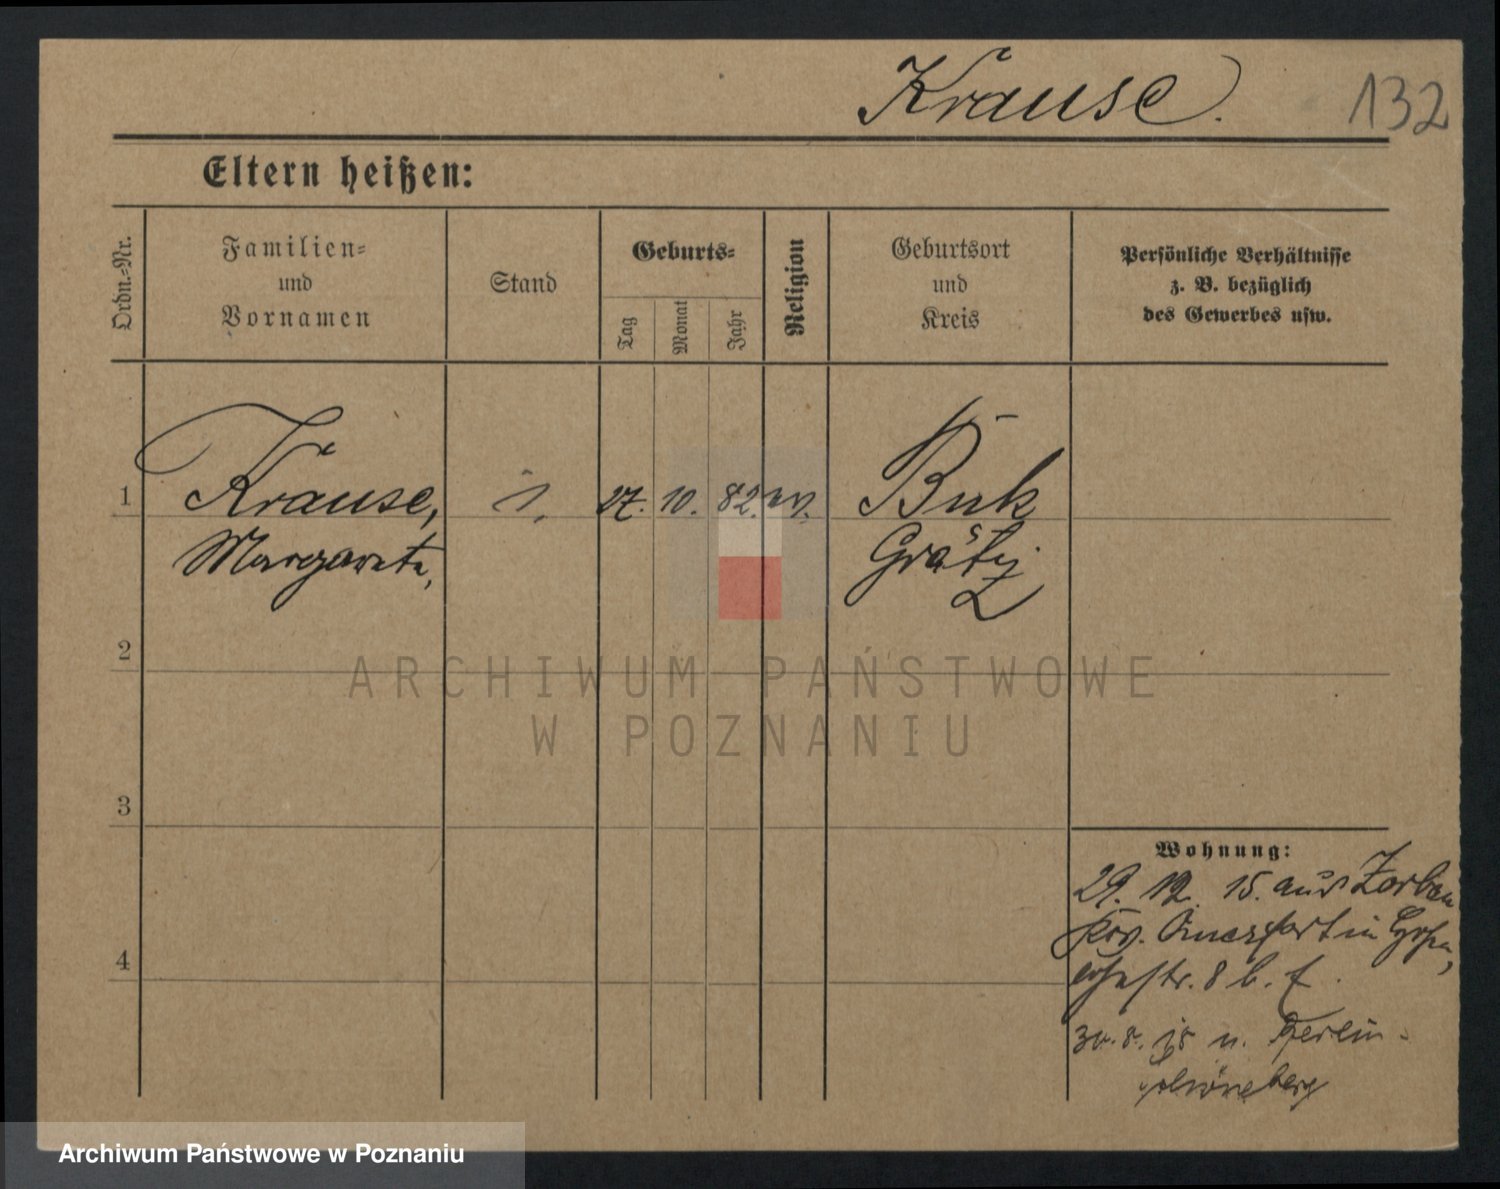 Krause.
132
Eltern heißen:
Ordn.-Nr.
Familien-
und
Vornamen
Stand
Geburts-
Tag
Monat
Jahr
Religion
Geburtsort
und
Kreis
Persönliche Verhältnisse
z. B. bezüglich
des Gewerbes usw.
1
Krause,
Margarete,
27. 10. 82. ev.
Buk
Grätz
2
ARCHIWUM PAŃSTWOWE
W POZNANIU
3
Wohnung:
29. 12. 15. aus Zorbau
Krs. Querfurt in
4
str. 8 b.
n. Berlin-
Schöneberg
Archiwum Państwowe w Poznaniu